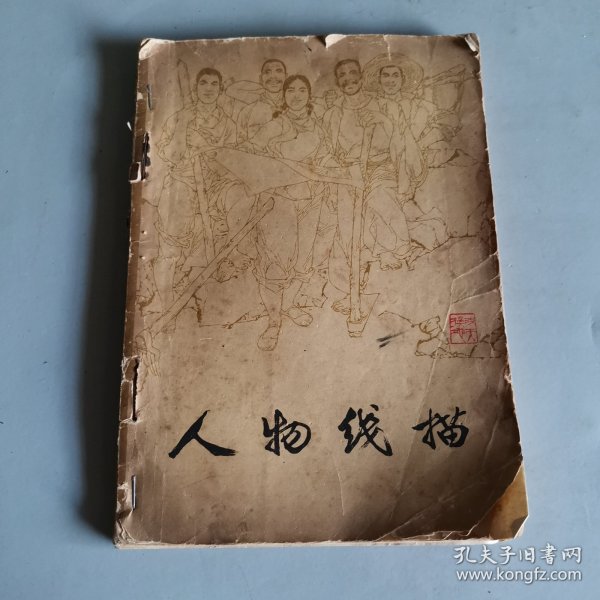 人物线描
孔夫子旧书网
www.kongfz.com